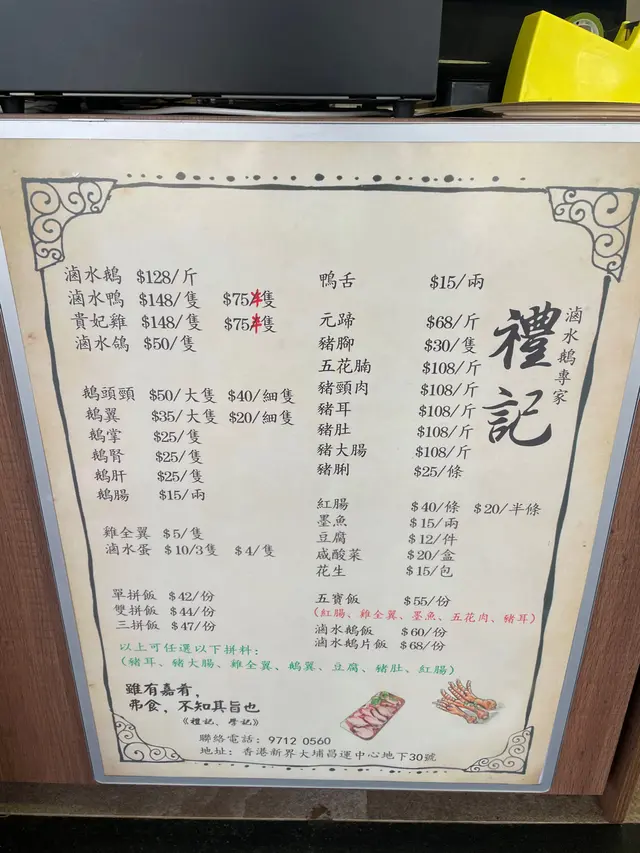 滷水鵝 $128/斤
滷水鴨 $148/隻 $75/半隻
貴妃雞 $148/隻 $75/半隻
滷水鴿 $50/隻
鵝頭頸 $50/大隻 $40/細隻
鵝翼 $35/大隻 $20/細隻
鵝掌 $25/隻
鵝腎 $25/隻
鵝肝 $25/隻
鵝腸 $15/兩
雞全翼 $5/隻
滷水蛋 $10/3隻 $4/隻
單拼飯 $42/份
雙拼飯 $44/份
三拼飯 $47/份
以上可任選以下拼料:
(豬耳、豬大腸、雞全翼、鵝翼、豆腐、豬肚、紅腸)
雖有嘉肴,
弗食, 不知其旨也
《禮記、學記》
鴨舌 $15/兩
元蹄 $68/斤
豬腳 $30/隻
五花腩 $108/斤
豬頸肉 $108/斤
豬耳 $108/斤
豬肚 $108/斤
豬大腸 $108/斤
豬脷 $25/條
紅腸 $40/條 $20/半條
墨魚 $15/兩
豆腐 $12/件
咸酸菜 $20/盒
花生 $15/包
五寶飯 $55/份
(紅腸、雞全翼、墨魚、五花肉、豬耳)
滷水鵝飯 $60/份
滷水鵝片飯 $68/份
滷水鵝專家
禮記
聯絡電話: 9712 0560
地址: 香港新界大埔昌運中心地下30號